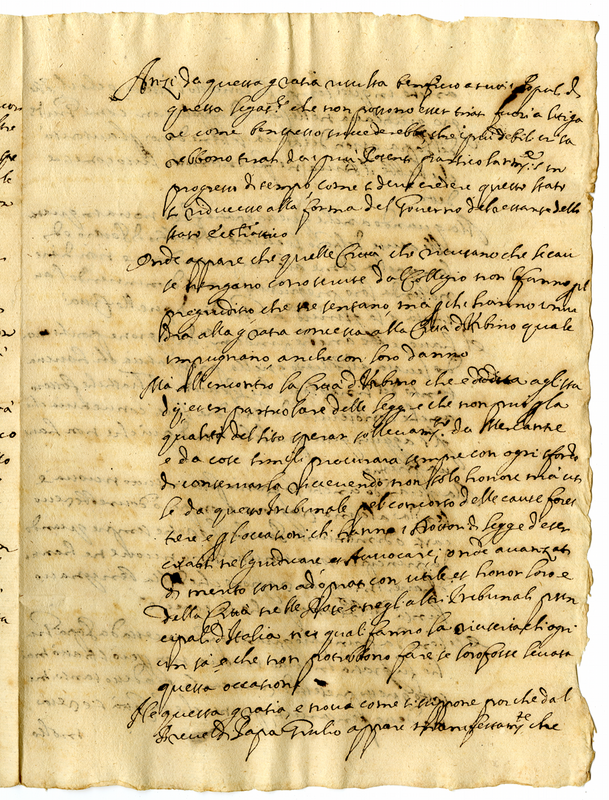 Anzi da questa gratia risulta beneficio a tutti i Popoli di
questa legat.e che non possono esser tirati fuori a litiga
re come ben spesso succederebbe, che i più debili si sa
rebbono tirati da i più Potenti particolarm.te in
progresso di tempo, come si deve credere questo stato
si riducesse alla forma del Governo del restante dello
stato Ecclesiastico
Onde appare che quelle Città, che ricusano che le cau
se vengano conosciute da Collegio non lo fanno pel
pregiuditio che ne sentano, ma perchè hanno invi
dia alla gratia concessa alla Città d'Urbino quale
impugnano anche con loro danno
Ma all'encontro la Città d'Urbino che è dedita agli stu
dij, et in particolare delle leggi e che non può p la
qualità del sito sperar sollevam.to da Mercantie
e da cose simili procurarà sempre con ogni sforzo
di conservarla ricevendo non solo honore ma uti
le da questo Tribunale pel concorso delle cause fores
tiere e p l'occasioni ch'hanno i Dottori di legge d'eser
citarsi nel giudicare et Avvocare, onde avanzati
di merito sono adoprati con utile et honor loro, e
della Città nelle Rote e negli altri Tribunali prin
cipali d'Italia nei quali fanno la riuscita ch'ogn
un sà, e che non potrebbono fare se loro fosse levata
questa occasione
Ne questa gratia, è nuova come si suppone perche dal
Breve di Papa Giulio appare manifestam.te che